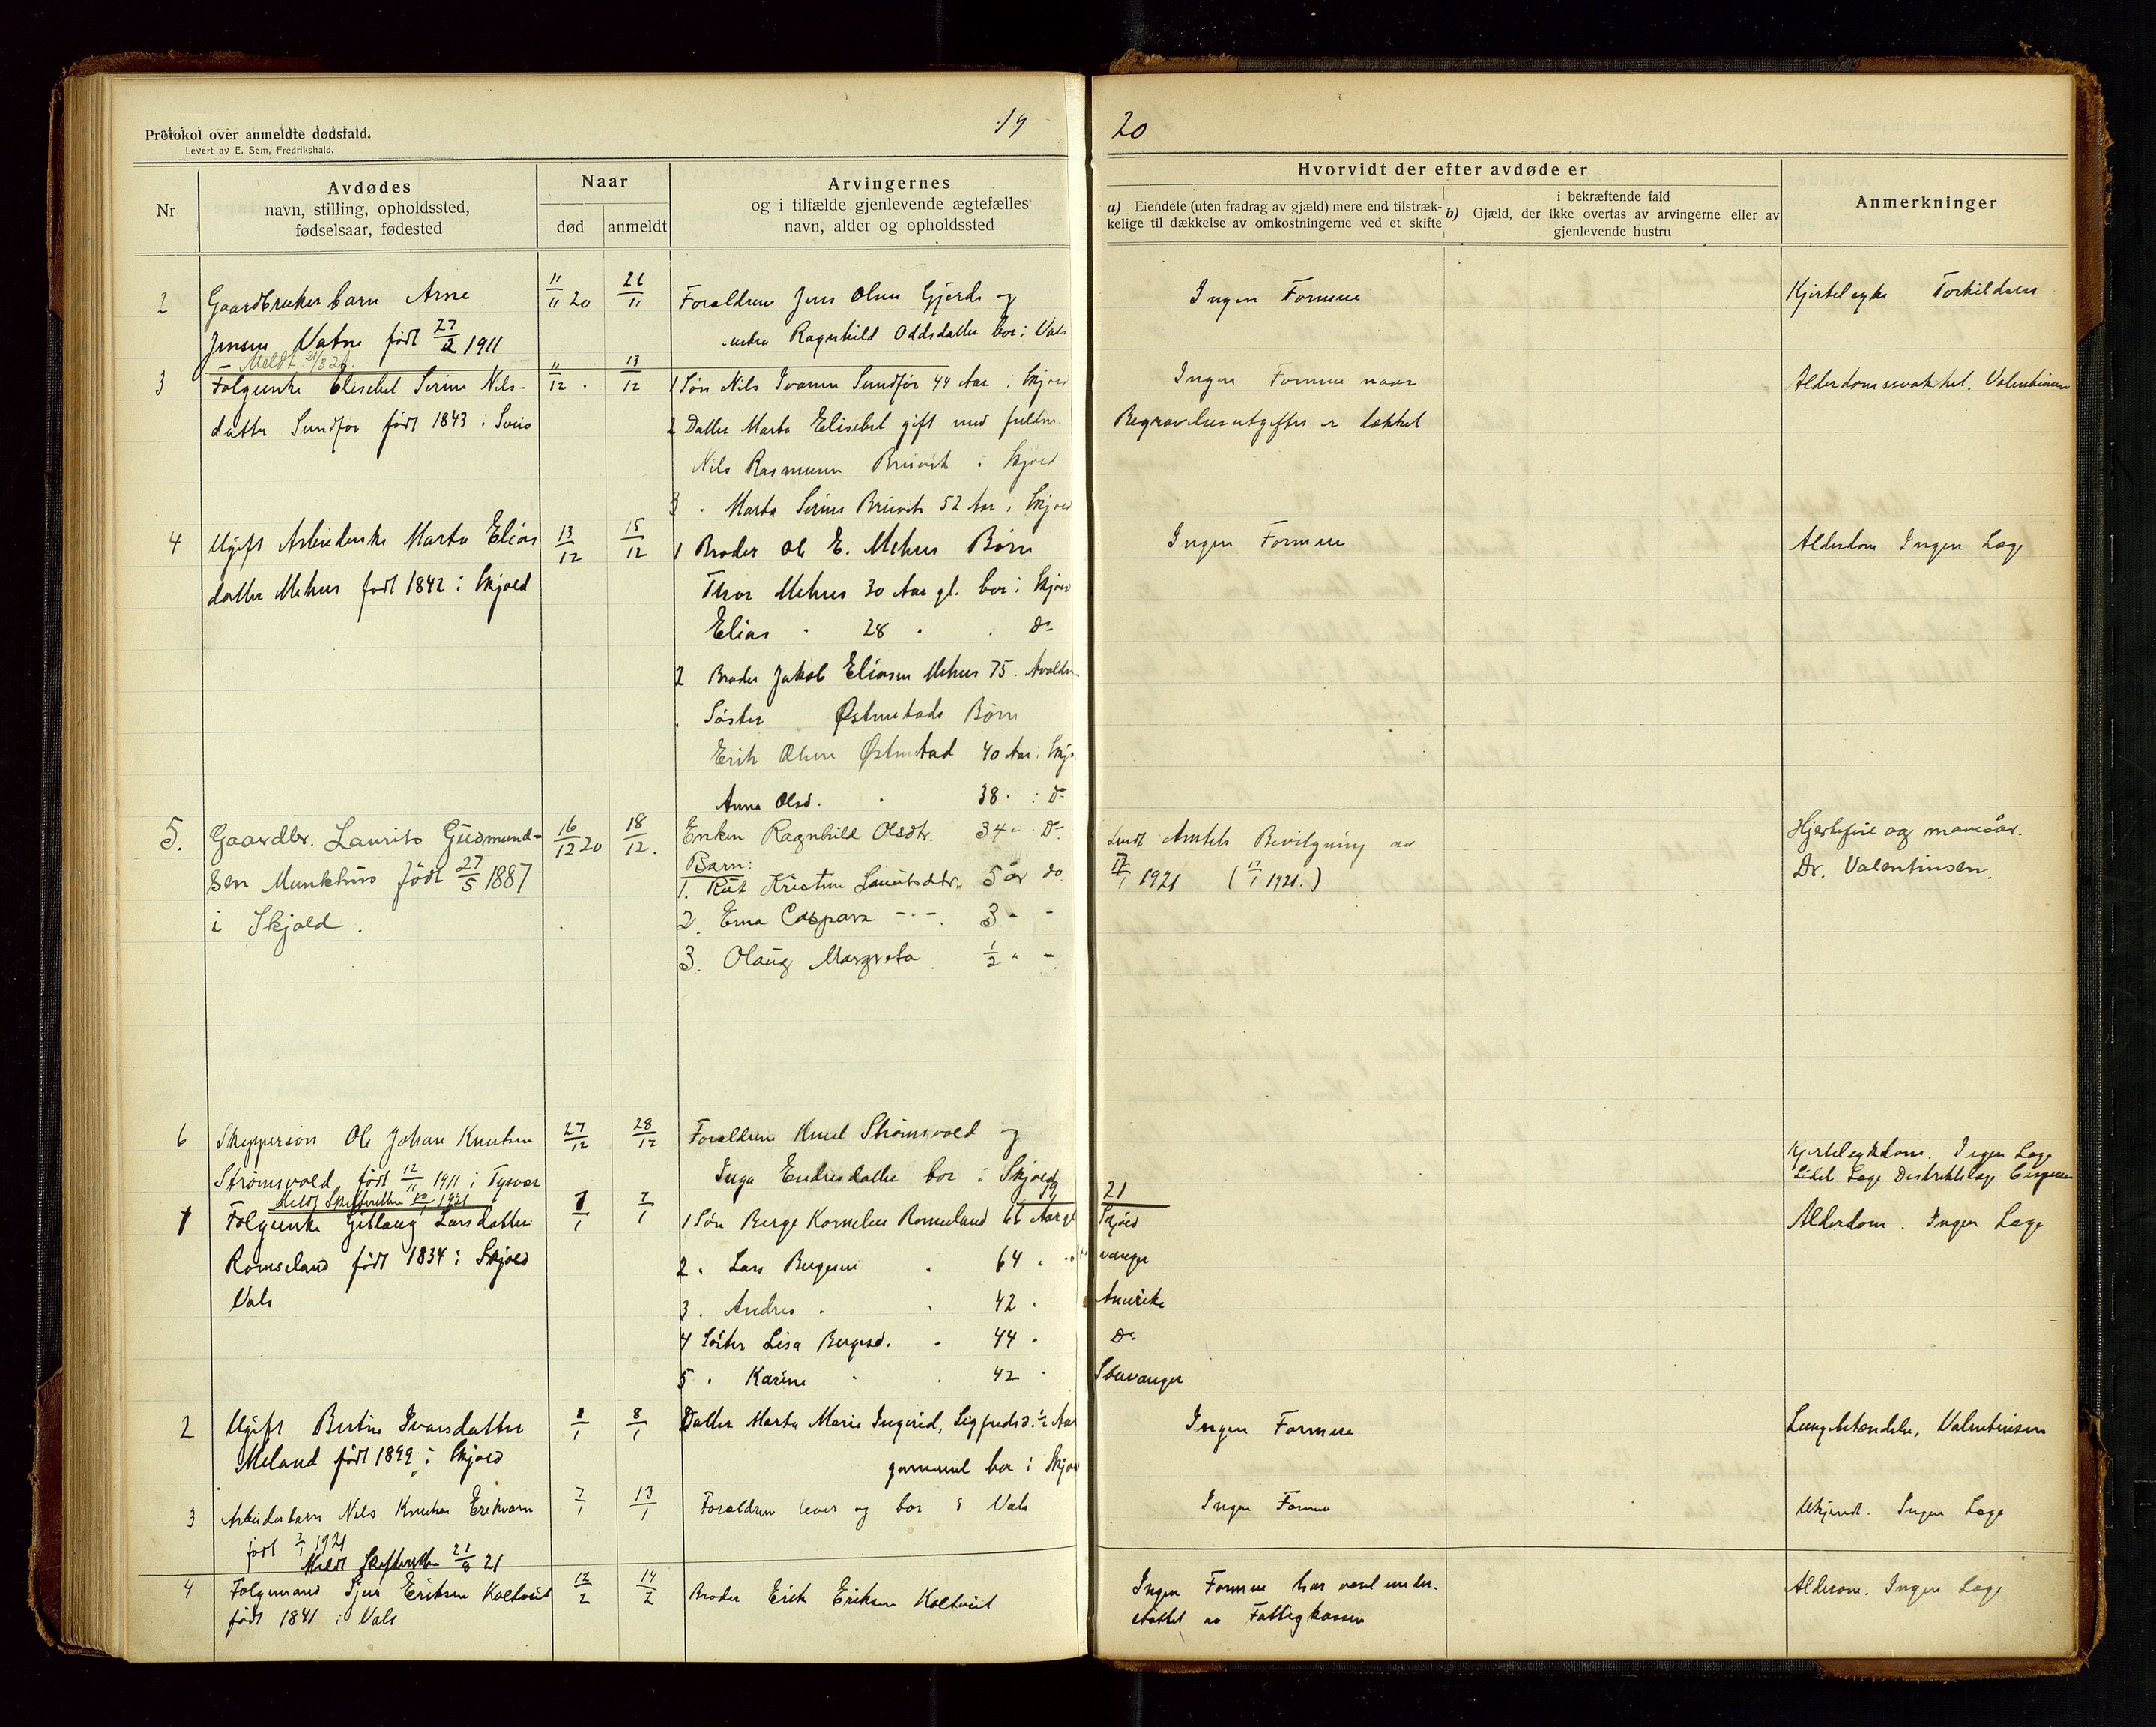 Protokol over anmeldte dødsfald.
Levert av E. Sem, Fredrikshald.
19
20
Nr
Avdødes
navn, stilling, opholdssted,
fødselsaar, fødested
Naar
død
anmeldt
Arvingernes
og i tilfælde gjenlevende ægtefælles
navn, alder og opholdssted
Hvorvidt der efter avdøde er
a) Eiendele (uten fradrag av gjæld) mere end tilstræk-
kelige til dækkelse av omkostningerne ved et skifte
i bekræftende fald
b) Gjæld, der ikke overtas av arvingerne eller av
gjenlevende hustru
Anmerkninger
2
Gaardbruker barn Arne
Jensen Vatne født 27/2 1911
11/11 20
21/11
Forældrene Jens Olsen Gjerde og
Ragnhild Oddsdatter bor i Vats
Ingen Formue
Kjertelsyke Torkildsen
Meldt 21/3 21
3
Folgeenke Elisebet Serine Nils-
datter Sundfør født 1843 i Sveio
11/12
13/12
1 Søn Nils Ivarsen Sundfør 44 Aar i Skjold
2 Datter Marta Elisebet gift med
Nils Rasmusen Bruvik i Skjold
3 " Marta Serine Bruvik 52 Aar i Skjold
Ingen Formue naar
Begravelsesutgifter er dækket
Alderdomssvakhet. Valentinsen
4
Ugift Arbeiderske Marta Elias
datter Mehus født 1842 i Skjold
13/12
15/12
1 Broder Ole E. Mehus Børn
Thor Mehus 30 Aar gl. bor i Skjold
Elias " 28 " " Do
2 Broder Jakob Eliasen Mehus 75.
Søster Østenstads Børn
Erik Olsen Østenstad 40 Aar i Skj
Anna Olsd. " 38 " i Do
Ingen Formue
Alderdom Ingen Læge
5.
Gaardbr. Laurits Gudmund-
sen Munkhus født 27/5 1887
i Skjold.
16/12 20
18/12.
Enken Ragnhild Olsdtr. 34 " Do
Barn:
1. Rut Kristine Lauritsdtr. 5 år do
2. Erna Caspara -"-. 3 " -
3. Olaug Margreta 1/2 " -
Amtets Bevilgning av
17/1 1921 (17/1 1921.)
Hjertefeil og mavesår.
Dr. Valentinsen.
6
Skippersøn Ole Johan Knutsen
Strømsvold født 12/11 1911 i Tysvær
27/12
28/12
Forældrene Knut Strømsvold og
Inga Endresdatter bor i Skjold
Kjertelsykdom. Ingen Læge
Meldt Skifteretten 1921
19
21
1
Folgeenke Gitlaug Larsdatter
Romseland født 1834 i Skjold
Vats
7/1
1 Søn Berge Kornelius Romseland 66 Aar gl Skjold
2 " Lars Bergesen " 64 " vanger
3 " Andres " " 42 " Amerika
4 Søster Lisa Bergesd. " 44 " Do
5 " Karine " " 42 " Stavanger
Alderdom. Ingen Læge
2
Ugift Bertine Ivarsdatter
Meland født 1899 i Skjold
8/1
8/1
Datter Marta Marie Ingerid, Sigfredsd. 1/2 Aar
gammel bor i Skjold
Ingen Formue
Lungebetændelse, Valentinsen
3
Arbeiderbarn Nils Knutsen
født 1921
7/1
13/1
Forældrene lever og bor i Vats
Ingen Formue
Ukjendt. Ingen Læge
Meldt Skifteretten 21
4
Folgemand Sjur Eriksen Koltveit
født 1841 i Vats
12/2
14/2
Broder Erik Eriksen Koltveit
Ingen Formue har været under-
støttet av Fattigkassen
Alderdom. Ingen Læge